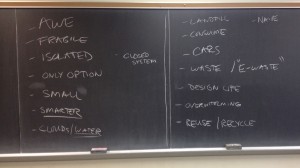 - AWE
- FRAGILE
- ISOLATED
- ONLY OPTION
- SMALL
- SMARTER
- CLOUDS/WATER
- CLOSED
SYSTEM
- LANDFILL
- CLIMATE
- CARS
- WASTE / "E-WASTE"
- DESIGN LIFE
- OVERWHELMING
- REUSE/RECYCLE